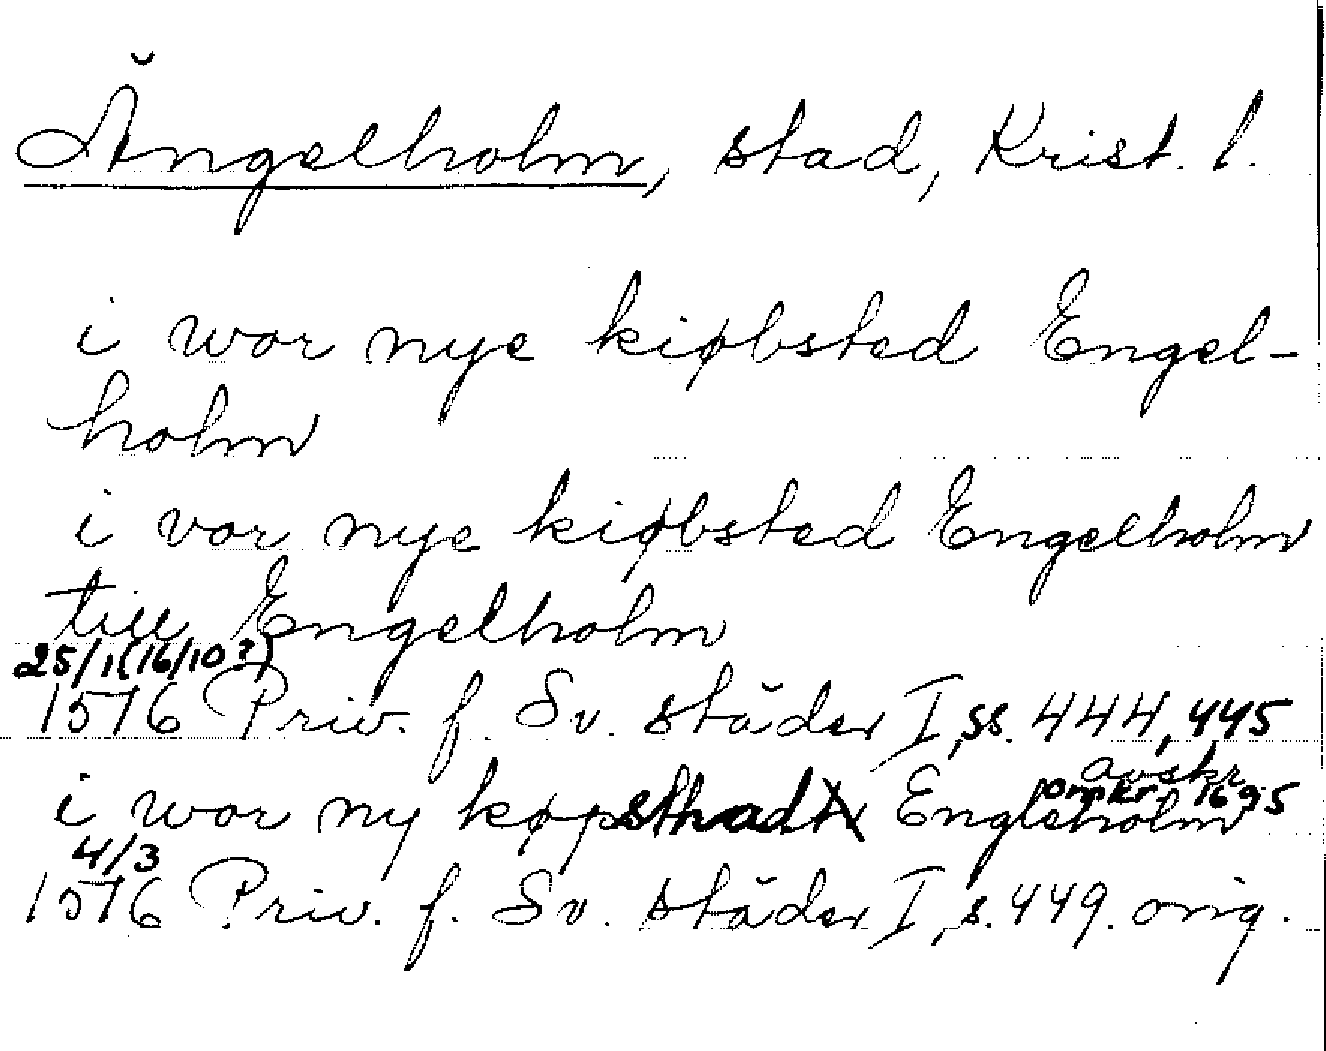 Ängelholm, stad, Krist. l.
i wor nye kiøbsted Engel-
holm
i vor nye kiøbsted Engelholm
till Engelholm
25/1 (16/10?)
1576 Priv. f. Sv. städer I, ss. 444, 445
avskr.
omkr. 1695
i wor ny køpsthad Engleholm
4/3
1576 Priv. f. Sv. städer I, s. 449. orig.